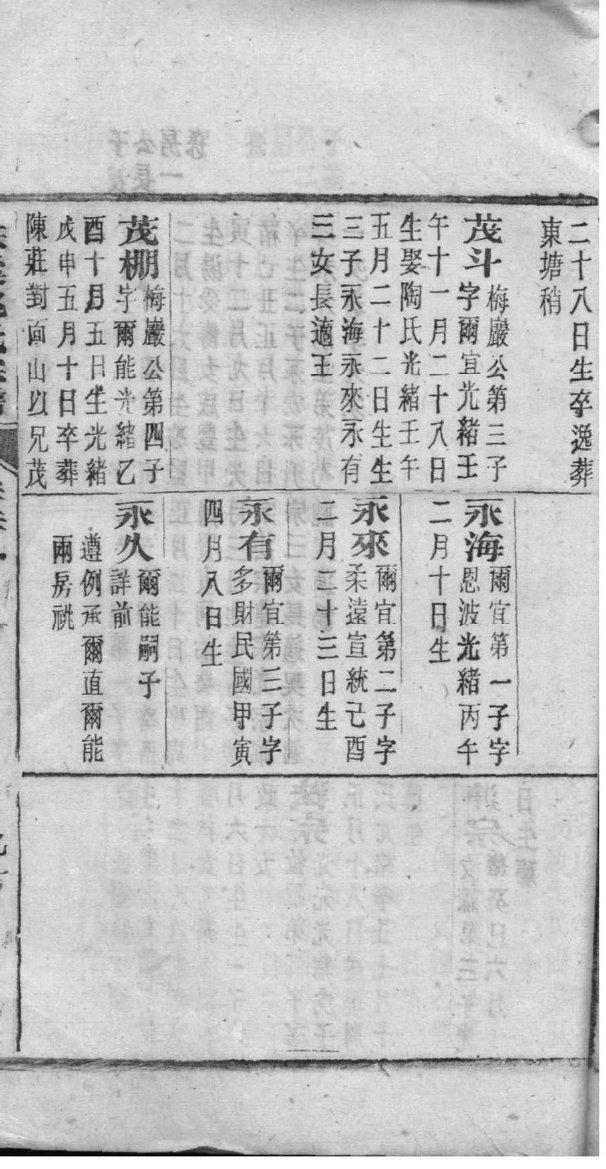 二十八日生卒逸葬
東塘稍
茂斗
梅巖公第三子
字爾宜光緒壬
午十一月二十八日
生娶陶氏光緒壬午
五月二十二日生生
三子永海永來永有
三女長適王
茂棚
梅巖公第四子
字爾能光緒乙
酉十月五日生光緒
戊申五月十日卒葬
陳莊對面山以兄茂
永海
爾宜第一子字
恩波光緒丙午
二月十日生
永來
爾宜第二子字
柔遠宣統己酉
二月二十三日生
永有
爾宜第三子字
多財民國甲寅
四月八日生
永久
爾能嗣子
詳前
遵例承爾直爾能
兩房祧